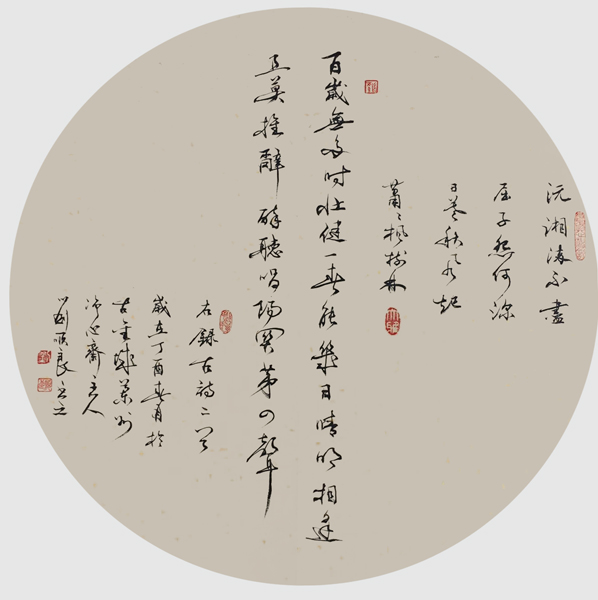 沅湘流不盡
屈子怨何深
日暮秋風起
蕭々楓樹林
百歲無多時壯健一春能幾日晴明相逢
且莫推辭醉聽唱陽關第四聲
右錄古詩二首
歲在丁酉春月於
古城萊州
淨心齋主人
劉順良書之